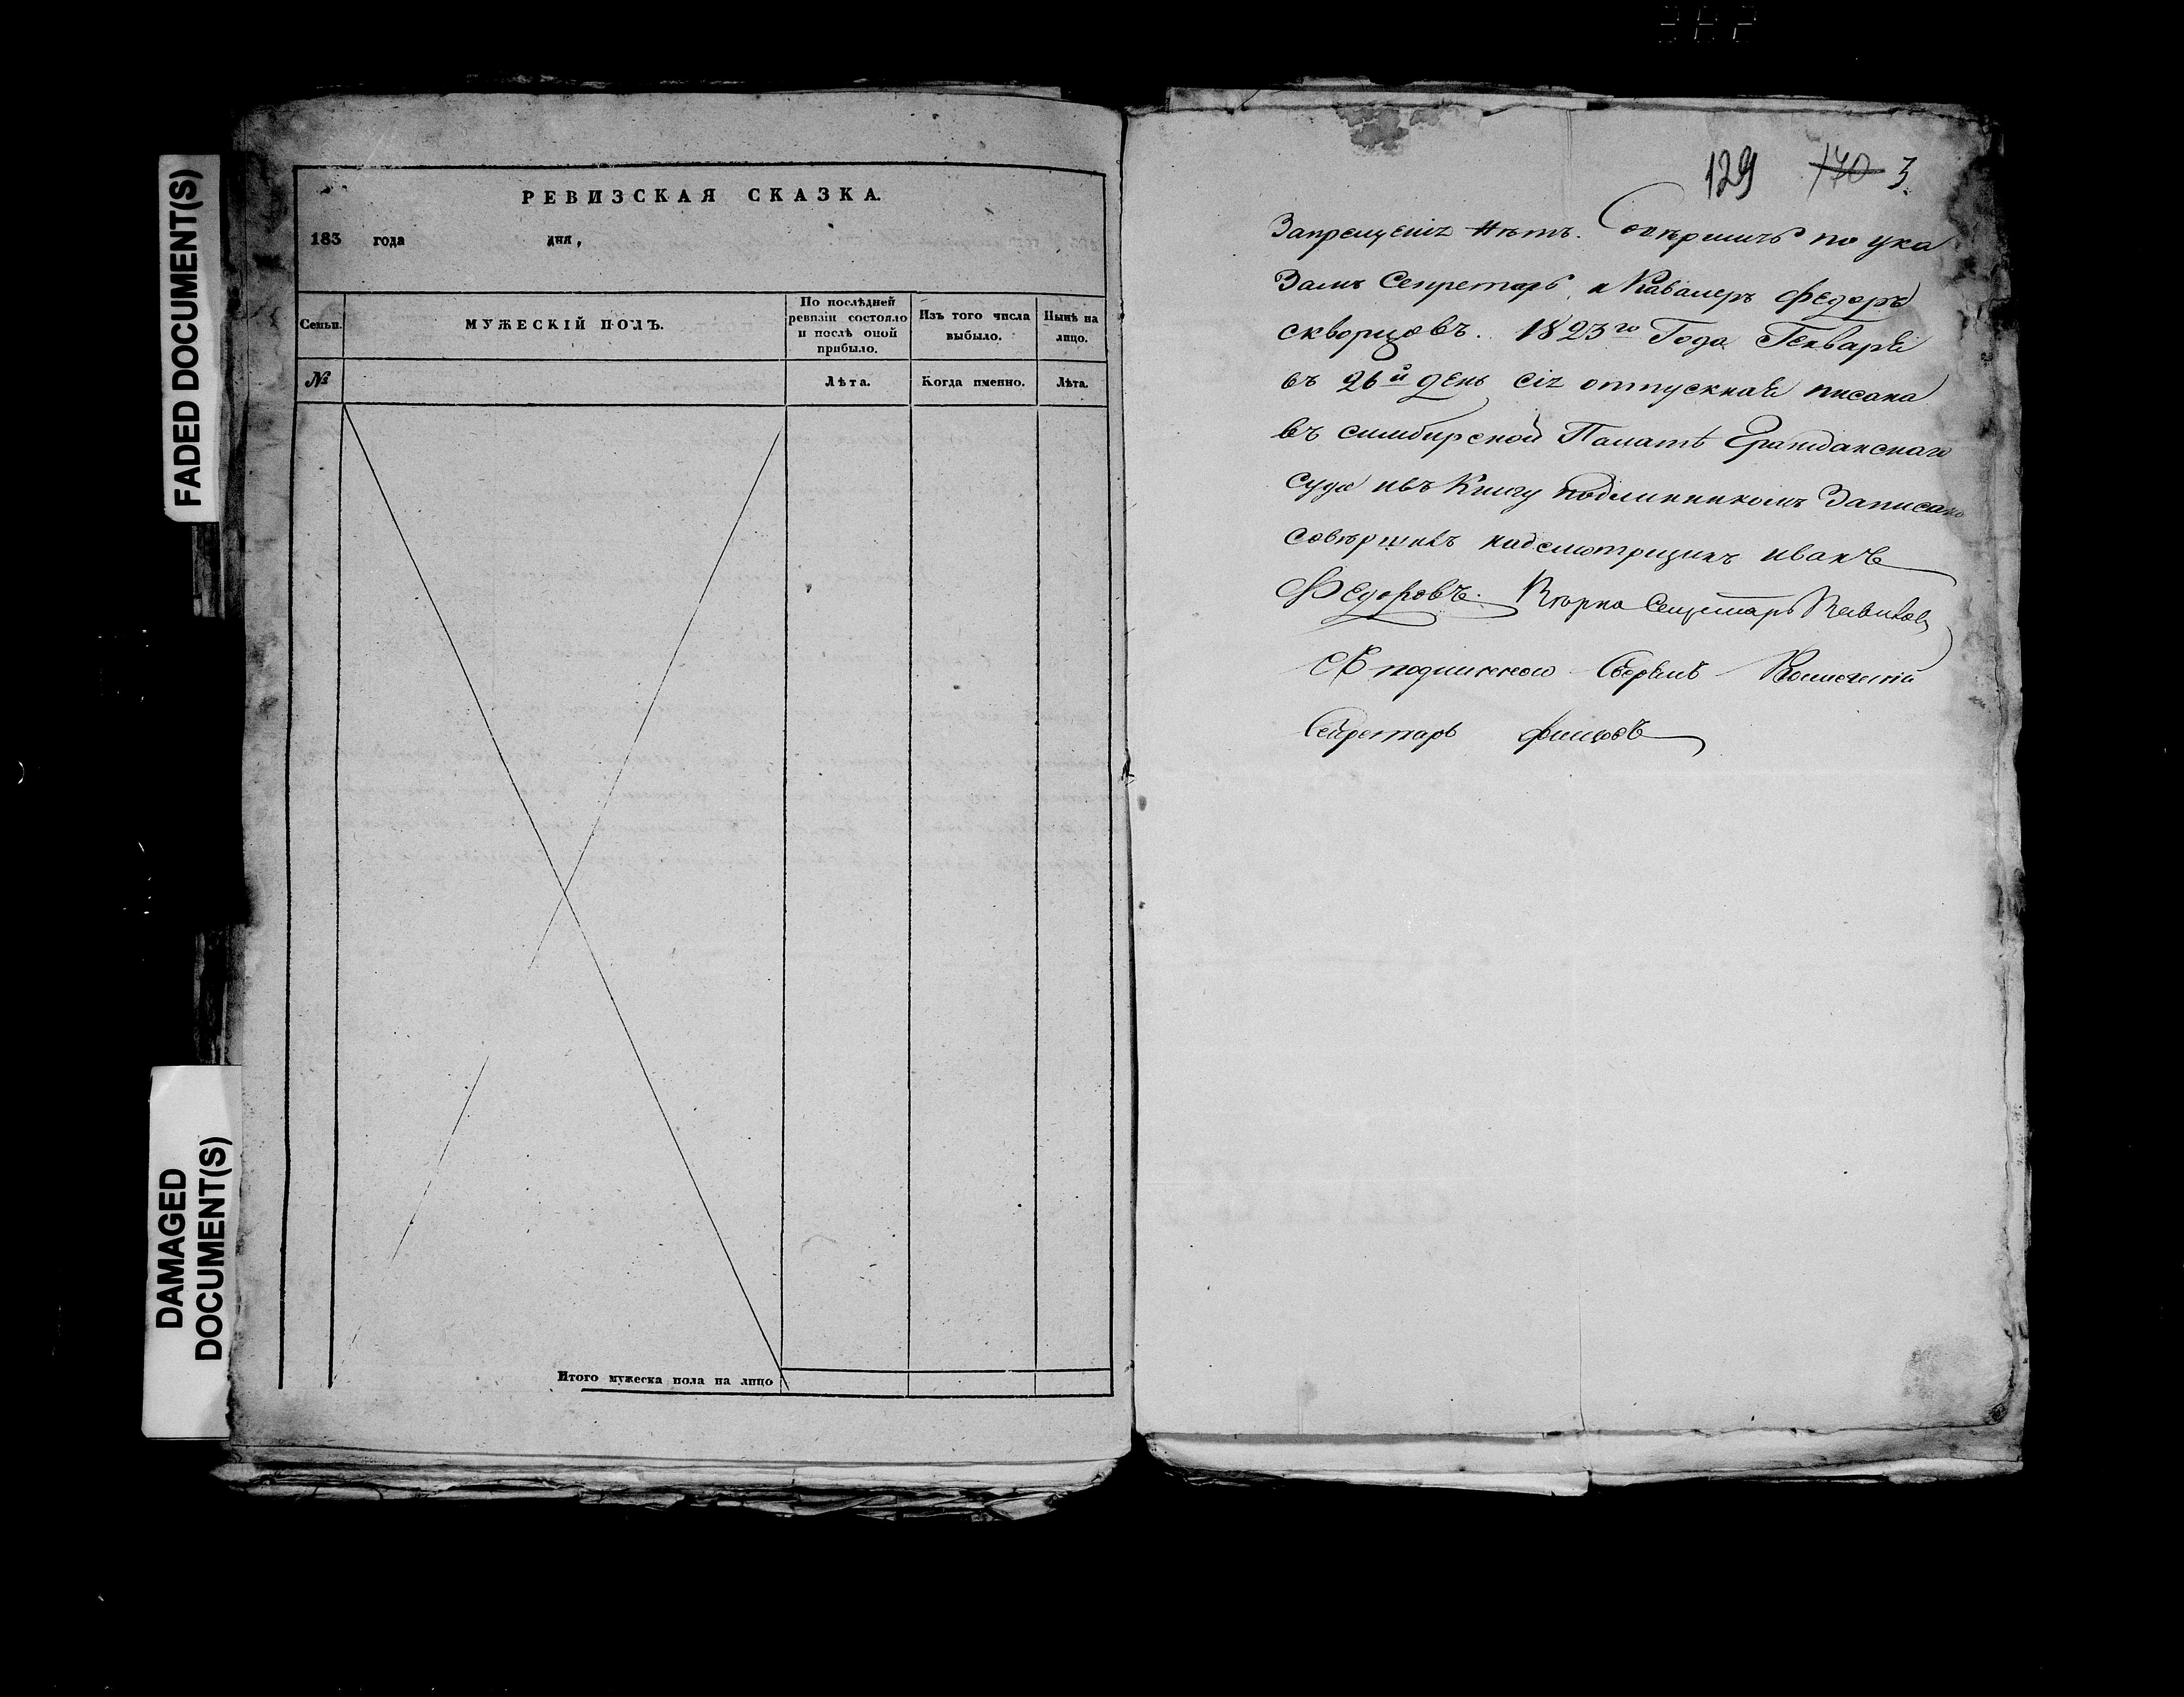 FADED DOCUMENT(S)
DAMAGED
DOCUMENT(S)
РЕВИЗСКАЯ СКАЗКА.
183 года дня,
Семьи.
МУЖЕСКІЙ ПОЛЪ.
По послѣдней
ревизіи состояло
и послѣ оной
прибыло.
Изъ того числа
выбыло.
Нынѣ на
лицо.
№
Лѣта.
Когда именно.
Лѣта.
Итого мужеска пола на лицо
129 170 3
Запрещенія нѣтъ. Совершить по ука
замъ Секретарь и Кавалеръ Федоръ
скворцовъ. 1823го Года Генваря
въ 26й день сія отпускная писана
въ симбирской Палатѣ Гражданскаго
суда ивъ Книгу подлинникомъ Записана
совершилъ надсмотрщикъ иванъ
Федоровъ.
Съ подлинною Сверялъ
Секретарь